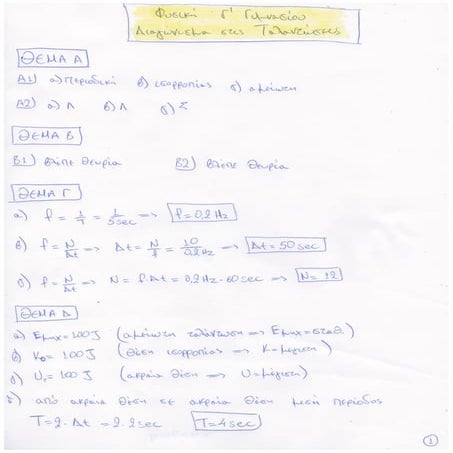 Φυσική Γ' Γυμνασίου
Διαγώνισμα στις Ταλαντώσεις
ΘΕΜΑ Α
Α1) α) περιοδική β) ισορροπίας γ) αμείωτη
Α2) α) Λ β) Λ γ) Σ
ΘΕΜΑ Β
Β1) βλέπε θεωρία Β2) βλέπε θεωρία
ΘΕΜΑ Γ
α) f = 1/T = 1/5sec => f = 0,2 Hz
β) f = N/Δt => Δt = N/f = 10/0,2Hz => Δt = 50 sec
γ) f = N/Δt => N = f·Δt = 0,2Hz·60sec => N = 12
ΘΕΜΑ Δ
α) Εμηχ = 100 J (αμείωτη ταλάντωση => Εμηχ = σταθ.)
β) Κο = 100 J (θέση ισορροπίας => Κ = μέγιστη)
γ) U = 100 J (ακραία θέση => U = μέγιστη)
δ) από ακραία θέση σε ακραία θέση μισή περίοδος
T = 2·Δt = 2·2sec T = 4sec
1